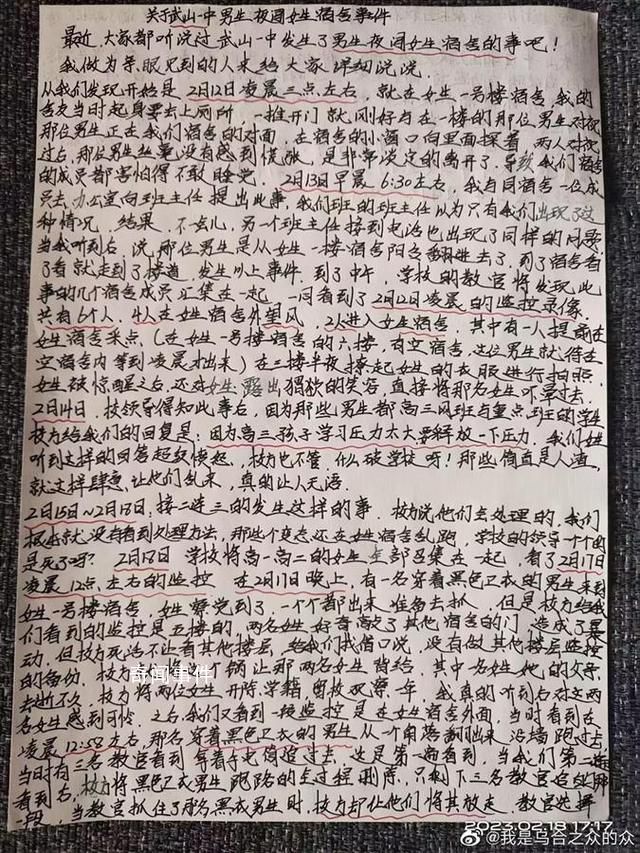 关于武山一中男生夜闯女生宿舍事件
最近，大家都听说过武山一中发生了男生夜闯女生宿舍的事吧！
我做为亲眼见到的人来给大家详细说说
从我们发现开始是2月12日凌晨三点左右，就在女生一号楼宿舍，我的
舍友当时起身要去上厕所，一推开门就刚好与在一楼的那位男生对视
那位男生正在我们宿舍的对面，在宿舍的小窗口向里面探着，两人对视
过后，那位男生丝毫没有感到慌张，是非常淡定的离开了，导致我们宿舍
的成员都害怕得不敢睡觉。2月13日早晨6:30左右，我与同宿舍一位成
员去办公室向班主任提出此事，我们班的班主任以为只有我们出现了这
种情况，结果，不一会儿，另一个班主任接到电话也出现了同样的问题
当我听到后，说那位男生是从女生一楼宿舍阳台翻进去了，到了宿舍看
了看就走到了楼道，发生以上事件，到了中午，学校的教官将发现此
事的几个宿舍成员汇集在一起，一同看到了2月12日凌晨的监控录像，
共有6个人，4人在女生宿舍外望风，2人进入女生宿舍，其中有一人提前在
女生宿舍采点（在女生一号楼宿舍的六楼，有空宿舍，这位男生就待在
空宿舍内等到凌晨才出来）在三楼半夜撩起女生的衣服进行拍照，
女生被惊醒之后，还对女生露出猥欲的笑容，直接将那名女生吓晕过去，
2月14日，校领导得知此事后，因为那些男生都高三风班与重点班的学生
校方给我们的回复是：因为高三孩子学习压力太大要释放一下压力，我们
听到这样的回答超级愤怒，校方也不管，什么破学校呀！那些简直是人渣，
就这样肆意，让他们乱来，真的让人无语.
2月15日~2月17日：接二连三的发生这样的事，校方说他们去处理的，我们
根本就没有看到处理方法，那些变态还在女生宿舍乱跑，学校的领导一个个的
是死了吗？2月18日 学校将高一高二的女生全部召集在一起，看了2月17日
凌晨12点左右的监控 在2月17日晚上，有一名穿着黑色卫衣的男生来到
女生一号楼宿舍，女生察觉到了，一个个都出来准备去抓，但是校方给我
们看到的监控是五楼的，两名女生好奇敲了其他宿舍的门，造成了暴
动，但校方死活不让看其他楼层，给我们找借口说，没有做其他楼层监控
的备份，校方将个锅让那两名女生背结，其中名女生她的父母
去世不久，校方将两位女生开除学籍，留校观察一年，我真的听到后对这两
名女生感到可惜，之后我们又看到一段监控是在女生宿舍外面，当时看到在
凌晨12:58左右，那名穿着黑色卫衣的男生从一个角落翻出来，沿墙跑过去
当时有三名教官看到拿着手电筒追过去，这是第一遍看到，当我们第二遍
看到后，校方将黑色卫衣男生跑路的全过程删除，只剩下三名教官追的那
一段，当教官抓住了那名黑衣男生时，校方却让他们将其放走，教官选择
奇闻事件
2023.02.18 17:17
@我是乌合之众的众